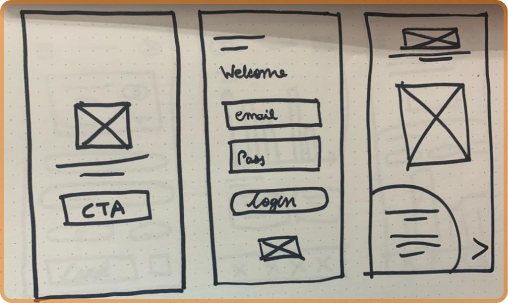 CTA
Welcome
email
Pass
Login
>